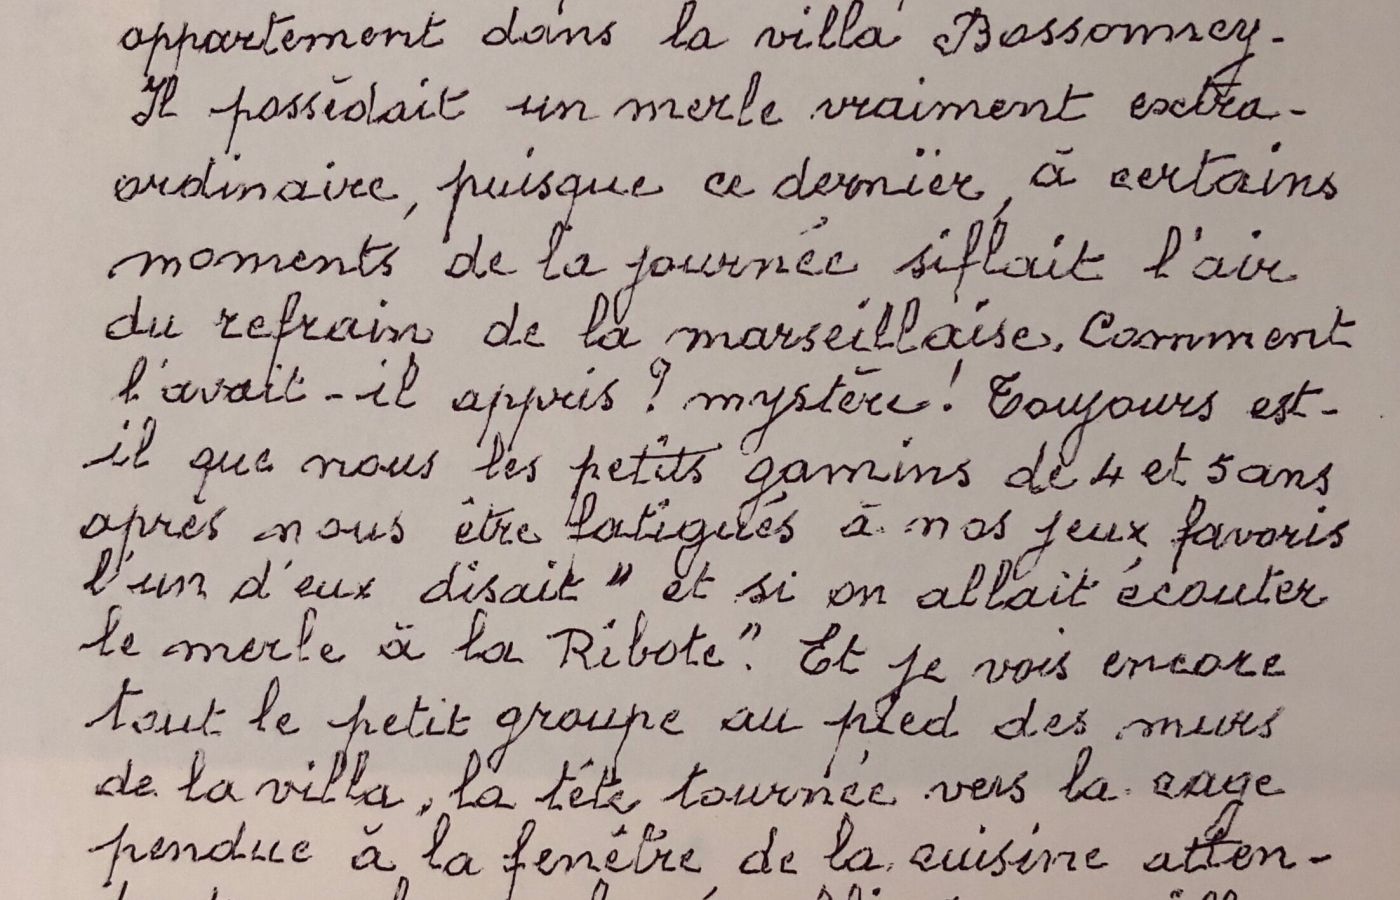 appartement dans la villa Bossonney.
Il possédait un merle vraiment extra-
ordinaire, puisque ce dernier, à certains
moments de la journée siflait l'air
du refrain de la marseillaise. Comment
l'avait-il appris ? mystère ! Toujours est-
il que nous les petits gamins de 4 et 5 ans
après nous être fatigués à nos jeux favoris
l'un d'eux disait " et si on allait écouter
le merle à la Ribote". Et je vois encore
tout le petit groupe au pied des murs
de la villa, la tête tournée vers la cage
pendue à la fenêtre de la cuisine atten-